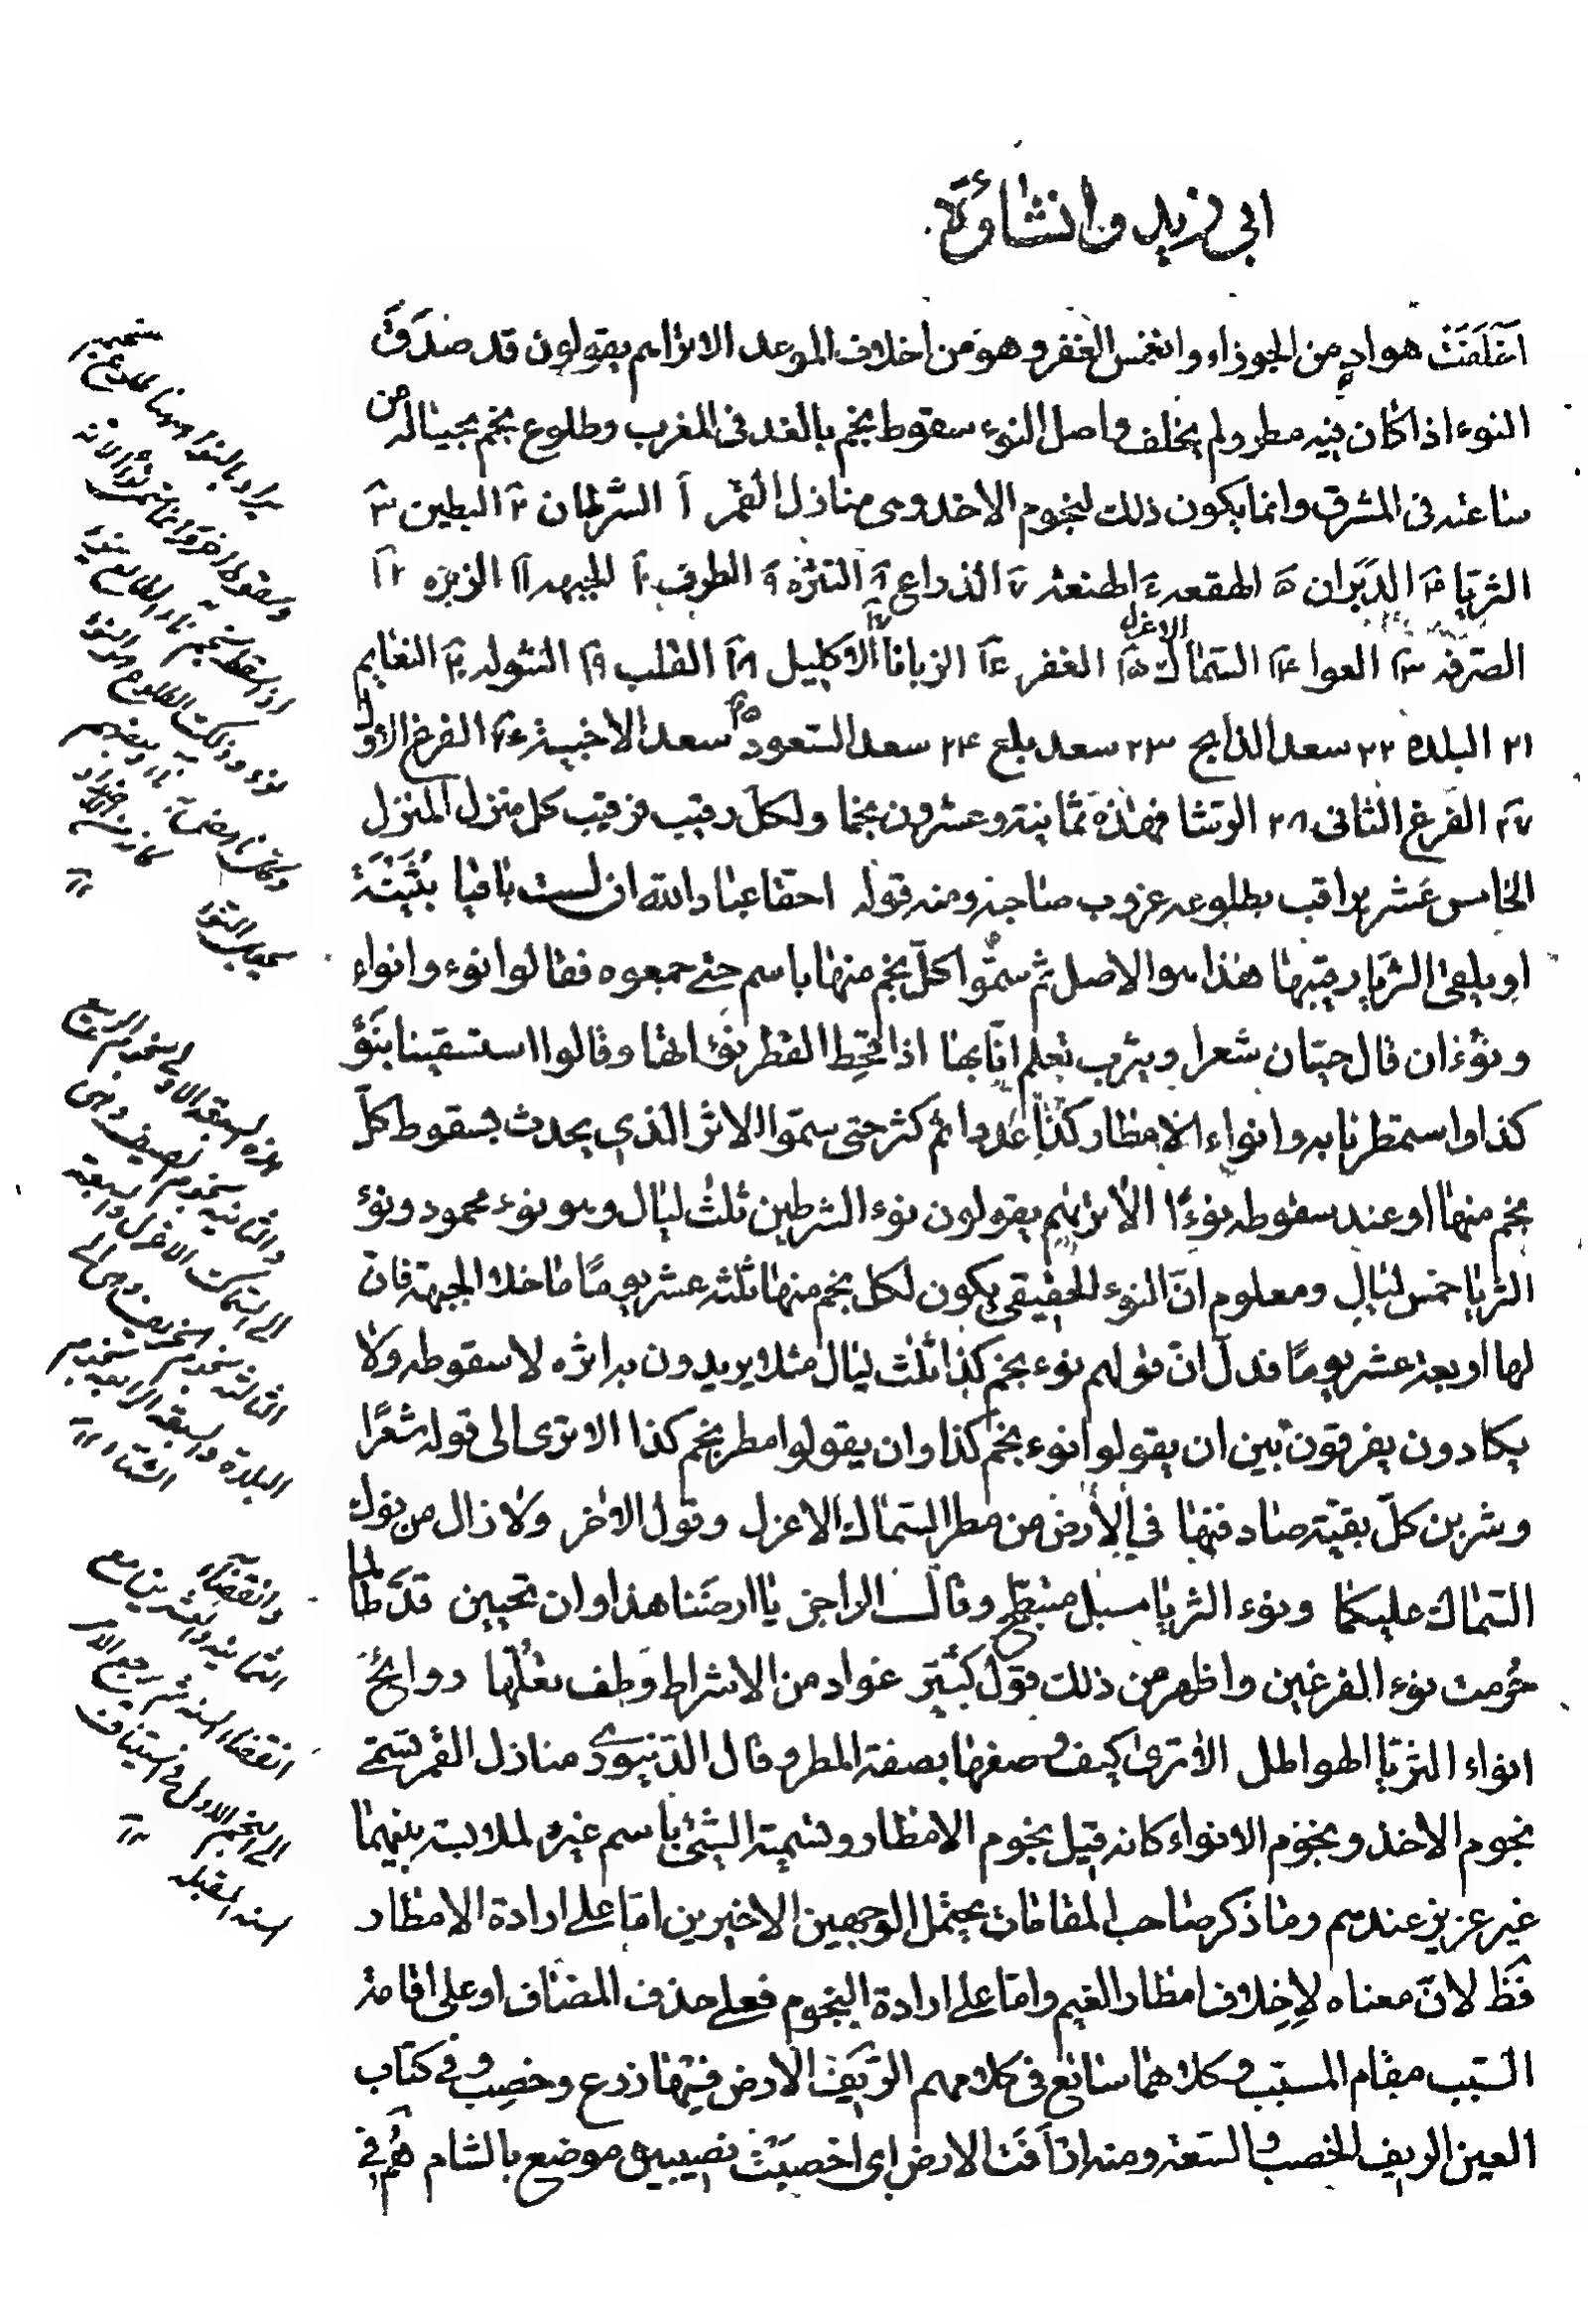 ابى زيد وانشاؤة
اخلفت هواد من الجوزاء وانغمس الغفر وهو من اخلاف الموعد الا تراهم يقولون قد صدق
النوء اذا كان فيه مطر ولم يخلف واصل النوء سقوط نجم بالغد فى المغرب وطلوع نجم بحياله من
ساعته فى المشرق وانما يكون ذلك لنجوم الاخذ وهى منازل القمر ١ الشرطان ٢ البطين ٣
الثريا ٤ الدبران ٥ الهقعه ٦ الهنعة ٧ الذراع ٨ النثره ٩ الطرف ١٠ الجبهه ١١ الزبره ١٢
الصرفه ١٣ العوا ١٤ السماك الاعزل ١٥ الغفر ١٦ الزبانا ١٧ الاكليل ١٨ القلب ١٩ الشوله ٢٠ النعايم
٢١ البلده ٢٢ سعد الذابح ٢٣ سعد بلع ٢٤ سعد السعود ٢٥ سعد الاخبية ٢٦ الفرغ الاول
٢٧ الفرغ الثانى ٢٨ الرشا فهذه ثمانية وعشرون نجما ولكل رقيب فرقيب كل منزل المنزل
الخامس عشر يراقب بطلوعه غروب صاحبه ومنه قوله احقا عباد الله ان لست لاقيا بثينة
او يلقى الثريا رقيبها هذا هو الاصل ثم سموا كل نجم منها باسم حتى جمعوه فقالوا نوء وانواء
ونوءان قال حسان شعرا ويثرب تعلم انا بها اذا قحط القطر نوءانها وقالوا استسقينا بنوء
كذا واستمطرنا به وانواء الامطار كذا عدوا ثم كثر حتى سموا الاثر الذى يحدث بسقوط كل
نجم منها او عند سقوطه نوءا الا تراهم يقولون نوء الشرطين ثلث ليال وهو نوء محمود ونوء
الثريا خمس ليال ومعلوم ان النوء الحقيقى يكون لكل نجم منها ثلثه عشر يوما ما خلا الجبهة فان
لها اربعة عشر يوما فدل ان قولهم نوء نجم كذا ثلث ليال مثلا يريدون به اثره لا سقوطه ولا
يكادون يفرقون بين ان يقولوا نوء نجم كذا وان يقولوا مطر نجم كذا الا ترى الى قوله شعرا
وشربن كل بقية صادفنها فى الارض من مطر السماك الاعزل وقول الاخر ولا زال من نوء
السماك عليكما ونوء الثريا مسبل متبطح وقال الراجز يا ارضنا هذا اوان تحيين قد طالما
حرمت نوء الفرغين واظهر من ذلك قول كثير غواد من الاشراط وطف تعلها روايح
انواء الثريا الهواطل الا ترى كيف وصفها بصفة المطر وقال الدينورى منازل القمر تسمى
نجوم الاخذ ونجوم الانواء كانه قيل نجوم الامطار وتسمية الشئ باسم غيره لملابسة بينهما
غير عزيز عندهم وما ذكر صاحب المقامات يحتمل الوجهين الاخيرين اما على ارادة الامطار
فظ لان معناه لاخلاف امطار الغيم واما على ارادة النجوم فعلى حذف المضاف او على اقامة
السبب مقام المسبب وكلاهما سائغ فى كلامهم الريف الارض فيها زرع وخصب وفى كتاب
العين الريف الخصب والسعة ومنه ارافت الارض اى اخصبت نصيبين موضع بالشام هم فى
هذه السبعة الاولى نجوم الربيع
والثانيه نجوم الصيف وهى
الى السماك الاعزل والسبعة
الثالثه نجوم الخريف وهى الى
البلدة والسبعة الرابعه نجوم
الشتاء
وانقضاء
الثمانية والعشرين مع
انقضاء السنه ثم رجع الامر
الى النجم الاول فى استيناف
السنه المقبله